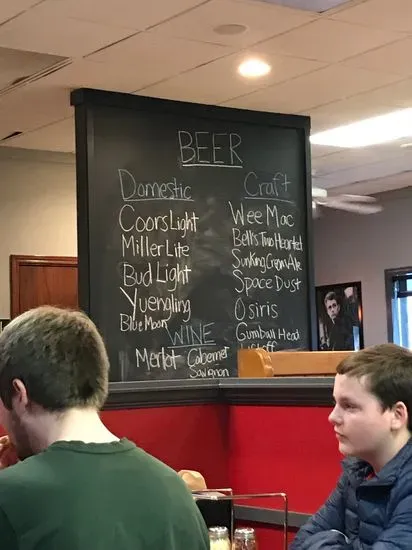 BEER
Domestic
Coors Light
Miller Lite
Bud Light
Yuengling
Blue Moon
Craft
Wee Mac
Bell's Two Hearted
Sunking Cream Ale
Space Dust
Osiris
Gumball Head
WINE
Merlot Cabernet
Sauvignon